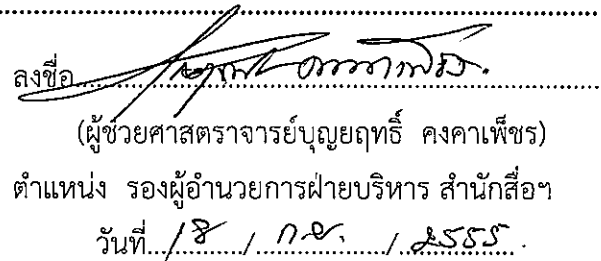 ลงชื่อ
(ผู้ช่วยศาสตราจารย์บุญยฤทธิ์ คงคาเพ็ชร)
ตำแหน่ง รองผู้อำนวยการฝ่ายบริหาร สำนักสื่อฯ
วันที่ 18 / ก.ย. / 2555